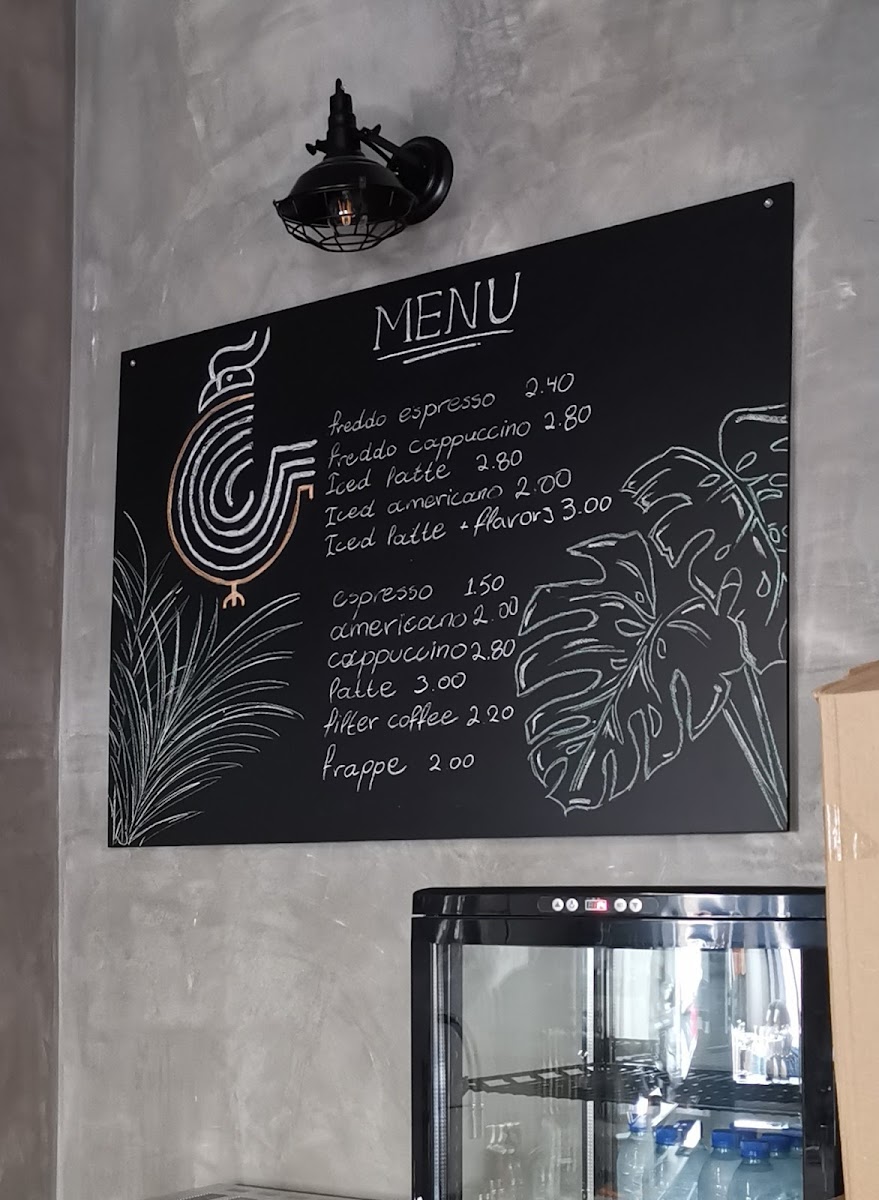 MENU
freddo espresso 2.40
freddo cappuccino 2.80
Iced latte 2.80
Iced americano 2.00
Iced latte + flavors 3.00
espresso 1.50
americano 2.00
cappuccino 2.80
latte 3.00
filter coffee 2 20
frappe 2 00